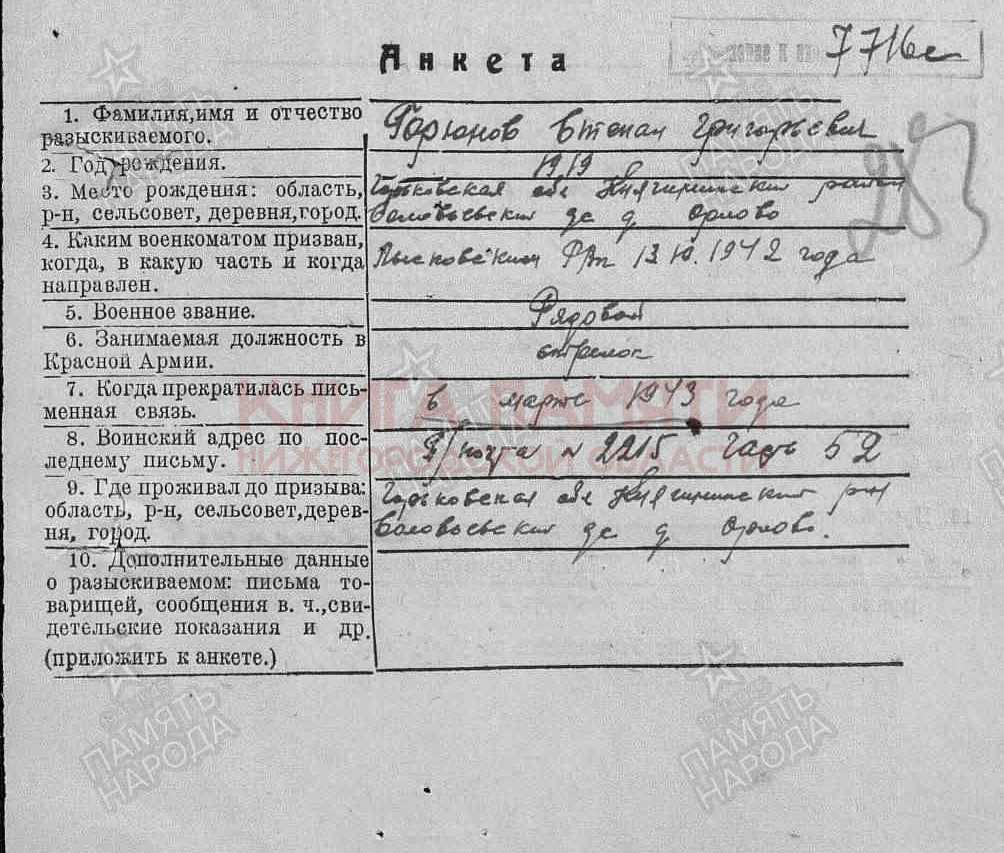 7716с
Анкета
1. Фамилия,имя и отчество
разыскиваемого.
Горюнов Степан Григорьевич
2. Год рождения.
1919
283
3. Место рождения: область,
р-н, сельсовет, деревня,город.
Горьковская обл Княгининский район
Соловьевский с/с д Орлово
4. Каким военкоматом призван,
когда, в какую часть и когда
направлен.
Лысковским РВк 13.10.1942 года
5. Военное звание.
Рядовой
6. Занимаемая должность в
Красной Армии.
стрелок
7. Когда прекратилась пись-
менная связь.
в марте 1943 года
8. Воинский адрес по пос-
леднему письму.
П/почта № 2215 часть 52
9. Где проживал до призыва:
область, р-н, сельсовет,дерев-
ня, город.
Горьковская обл Княгининский р-н
Соловьевский с/с д Орлово.
10. Дополнительные данные
о разыскиваемом: письма то-
варищей, сообщения в. ч.,сви-
детельские показания и др.
(приложить к анкете.)
КНИГА ПАМЯТИ
НИЖЕГОРОДСКОЙ ОБЛАСТИ
ПАМЯТЬ
НАРОДА
ПАМЯТЬ
НАРОДА